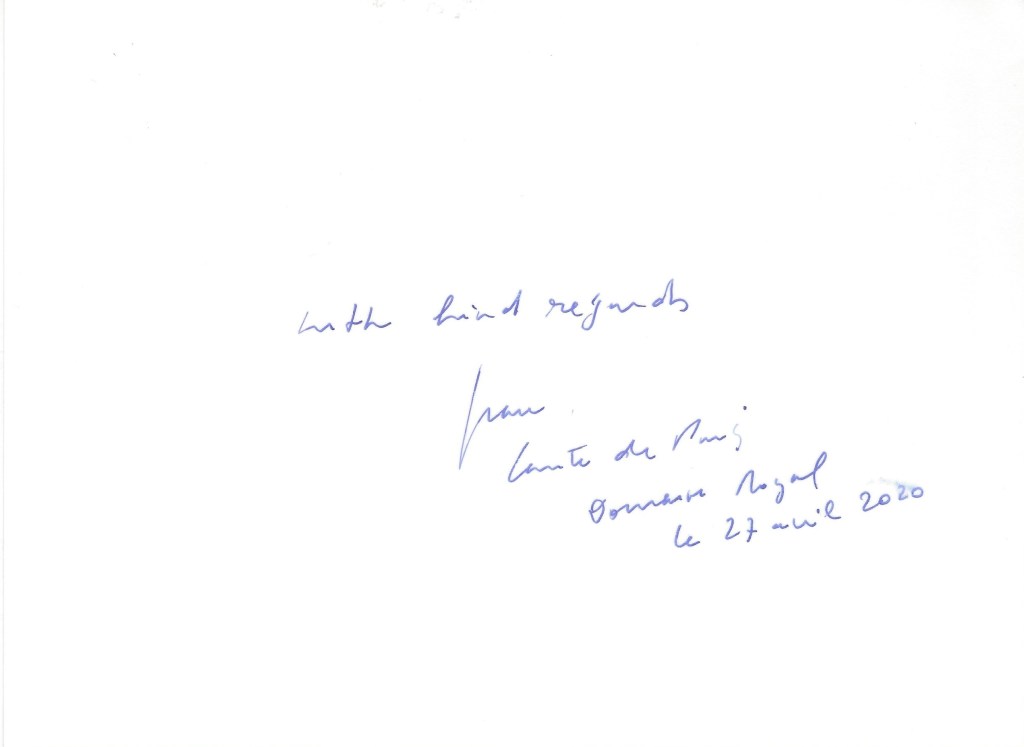 with kind regards
Jean
Comte de Paris
Domaine Royal
le 27 avril 2020